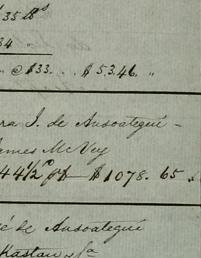 35 lbs
34 "
@ $33. . $5.3.46. "
ra J. de Ansoategui -
James McVey
44 1/2 - $1078. 65
é de Ansoategui